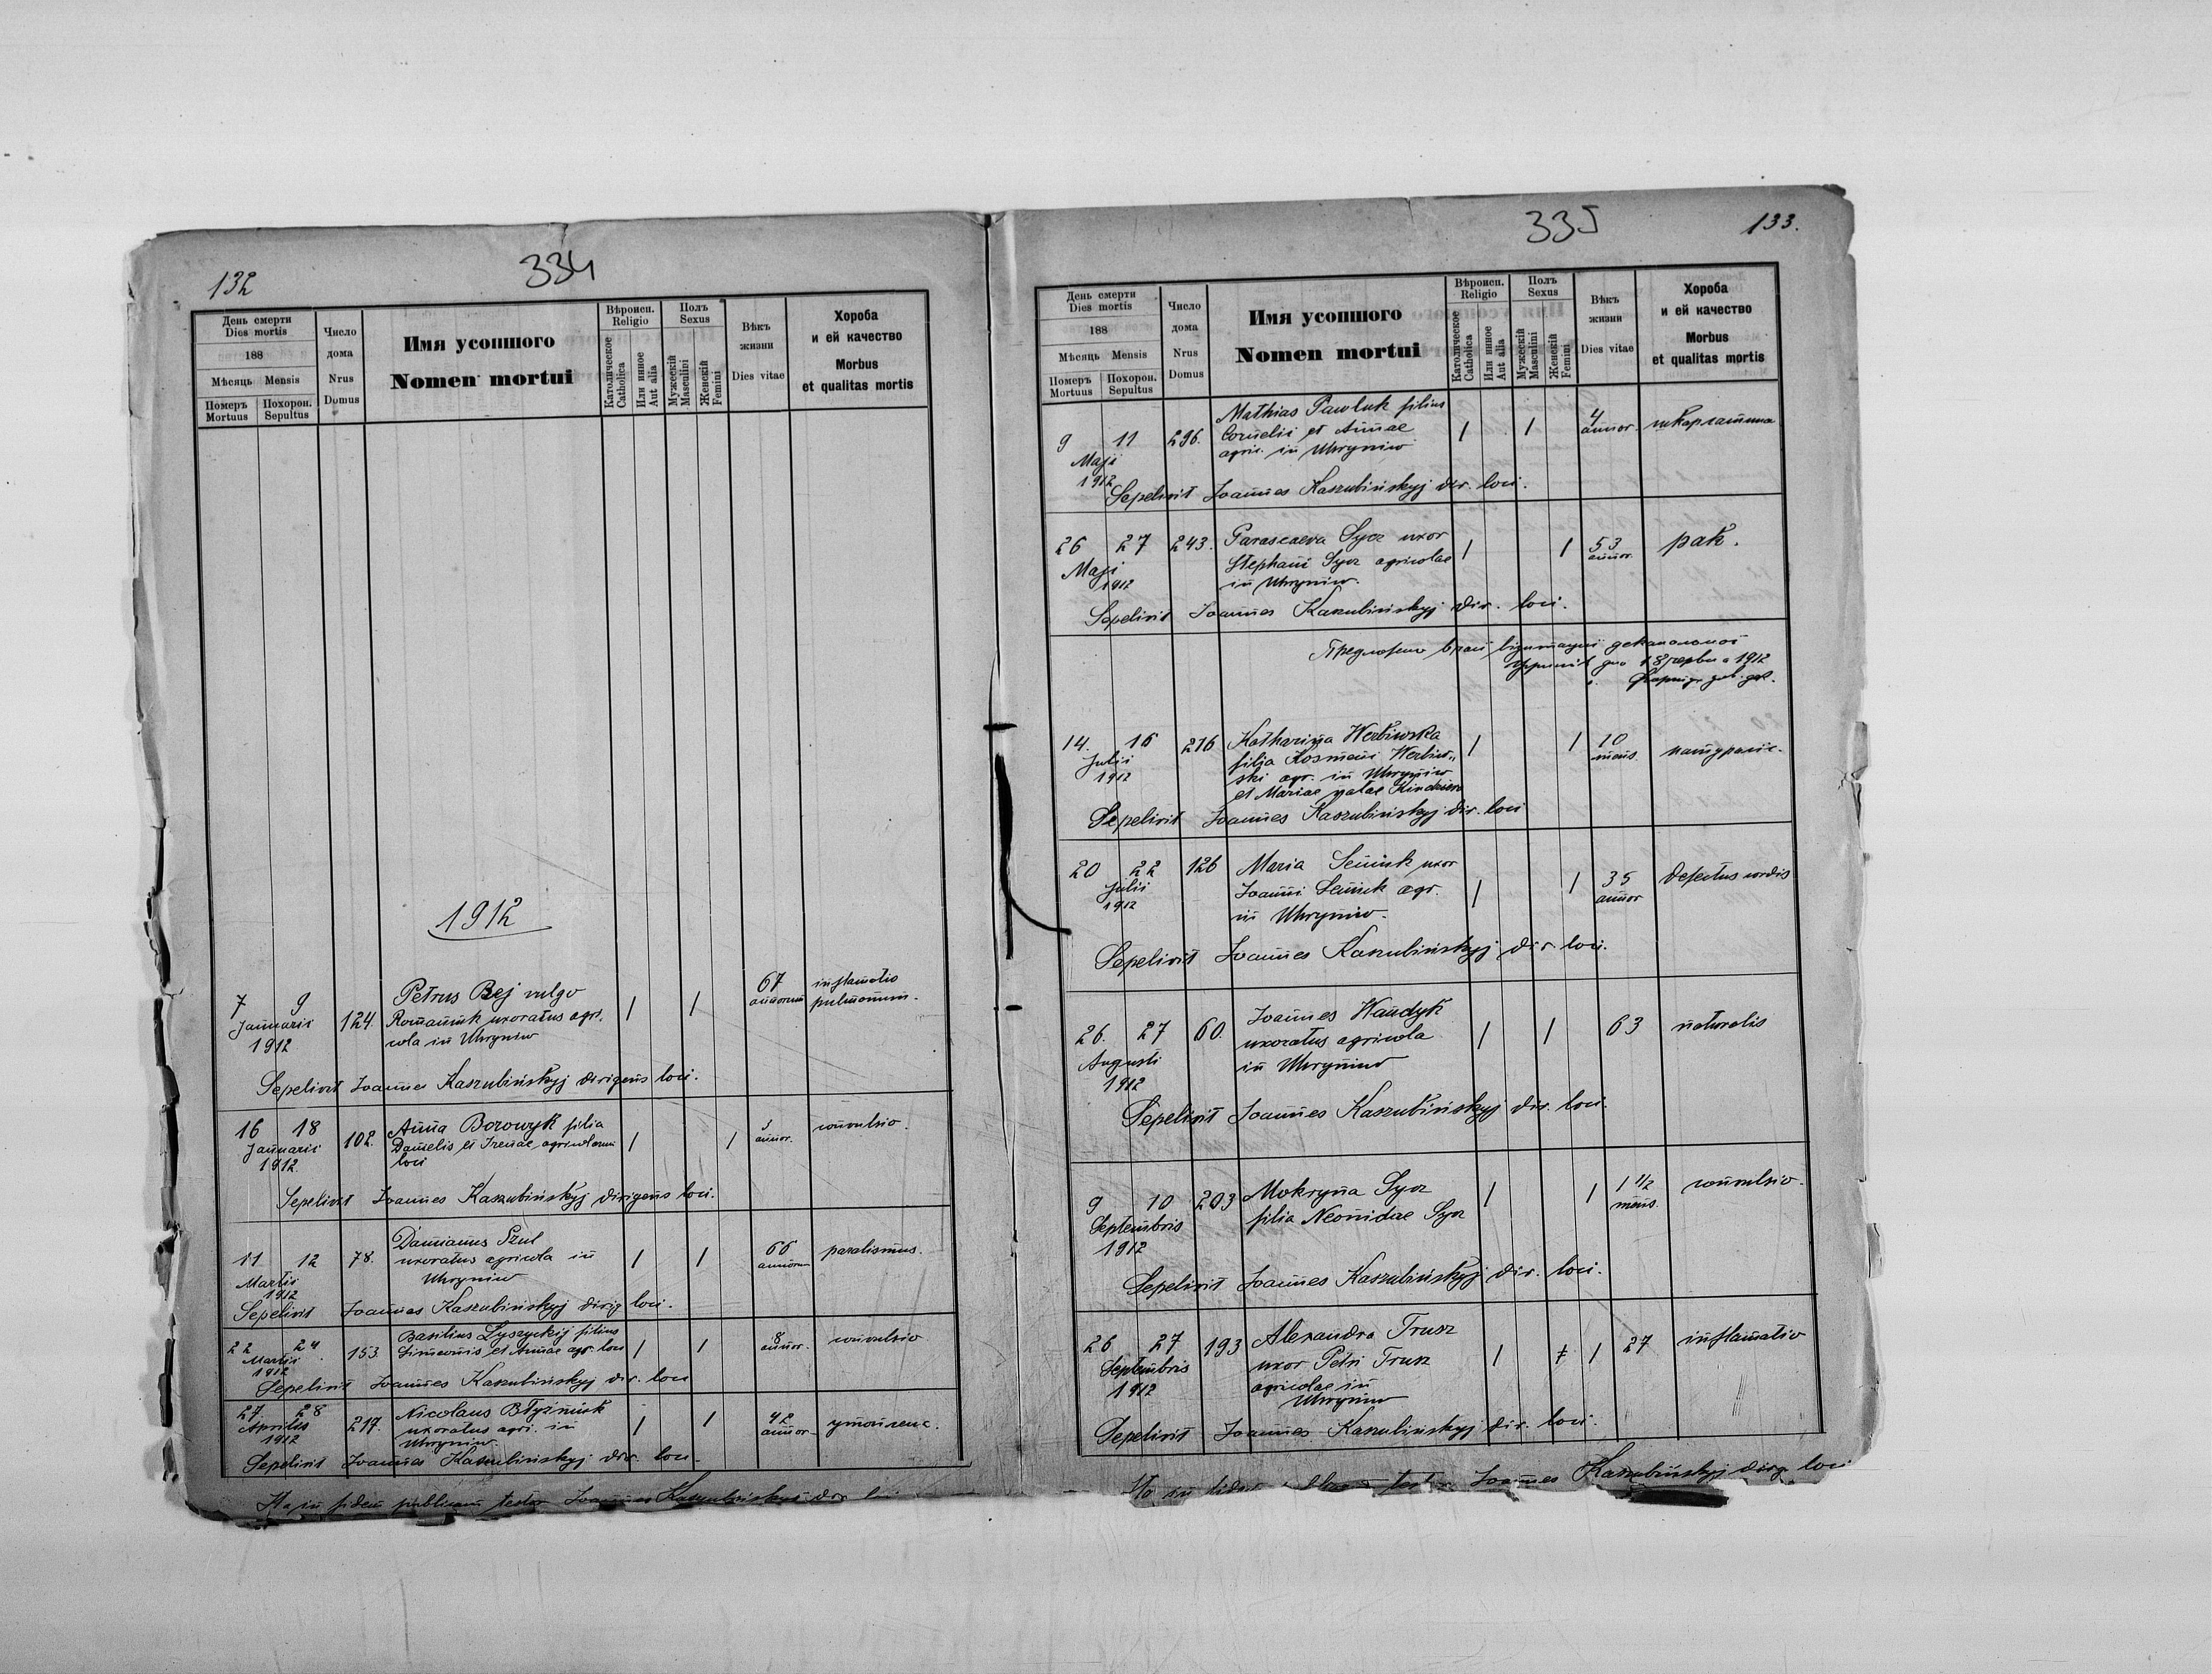 132
334
День смерти
Dies mortis
188
Мѣсяць Mensis
Померъ
Mortuus
Похорон.
Sepultus
Число
дома
Nrus
Domus
Имя усопшого
Nomen mortui
Вѣроисп.
Religio
Католическое
Catholica
Или инное
Aut alia
Полъ
Sexus
Мужескій
Masculini
Женскій
Femini
Вѣкъ
жизни
Dies vitae
Хороба
и ей качество
Morbus
et qualitas mortis
1912
7 9
Januaris
1912
124.
Petrus Bej vulgo
Romaniuk uxoratus agri.
cola in Uhryniw
1 1
67
annorum
inflamatio
pulmonum.
Sepelivit Joannes Kaszubińskyj dirigens loci.
16 18
Januaris
1912.
102.
Anna Borowyk filia
Danielis et Irenae agricolarum
loci
1 1
3
annor.
convulsio.
Sepelivit Joannes Kaszubińskyj dirigens loci.
11 12
Martis
1912
78.
Damianus Szul
uxoratus agricola in
Uhryniw
1 1
66
annorum
paralismus.
Sepelivit Joannes Kaszubińskyj dirig loci.
22 24
Martis
1912
153.
Basilius Łyszyckij filius
Simeonis et Annae agr. loci
1 1
8
annor.
convulsio
Sepelivit Joannes Kaszubińskyj dir. loci
27. 28
Aprilis
1912
217.
Nicolaus Błyźniuk
uxoratus agri. in
Uhryniw.
1 1
42
annor.
утоплене.
Sepelivit Joannes Kaszubińskyj dir. loci.
Ita in fidem publicam testor Joannes Kaszubińskyj dir loci
335
133.
День смерти
Dies mortis
188
Мѣсяць Mensis
Померъ
Mortuus
Похорон.
Sepultus
Число
дома
Nrus
Domus
Имя усопшого
Nomen mortui
Вѣроисп.
Religio
Католическое
Catholica
Или инное
Aut alia
Полъ
Sexus
Мужескій
Masculini
Женскій
Femini
Вѣкъ
жизни
Dies vitae
Хороба
и ей качество
Morbus
et qualitas mortis
9 11
Maji
1912
296.
Mathias Pawluk filius
Cornelii et Annae
agric. in Uhryniw
1 1
4
annor.
шкарлатина
Sepelivit Joannes Kaszubińskyj dir. loci.
26 27
Maji
1912
243.
Parascaeva Sycz uxor
Stephani Sycz agricolae
in Uhryniw.
1 1
53
annor.
рак.
Sepelivit Joannes Kaszubińskyj dir. loci.
Предложено
1912
14. 16
Julii
1912
216
Katharina Werbiwska
filja Kosmani Werbiw„
ski agr. in Uhryniw
et Mariae natae
1 1
10
mens.
натураліс.
Sepelivit Joannes Kaszubińskyj dir. loci
20 22
Julii
1912
126
Maria Seniuk uxor
Joanni Seniuk agr.
in Uhryniw.
1 1
35
annor
defectus cordis
Sepelivit Joannes Kaszubińskyj dir. loci.
26. 27
Augusti
1912
60.
Joannes Wandyk
uxoratus agricola
in Uhryniw
1 1
63
naturalis
Sepelivit Joannes Kaszubińskyj dir. loci.
9 10
Septembris
1912
203
Mokryna Sycz
filia Neonidae Sycz
1 1
1 1/2
mens.
convulsio.
Sepelivit Joannes Kaszubińskyj dir. loci.
26 27
Septembris
1912
193
Alexandra Trusz
uxor Petri Trusz
agricolae in
Uhryniw
1 1
27
inflamatio
Sepelivit Joannes Kaszubińskyj dir. loci.
Joannes Kaszubińskyj dirig loci